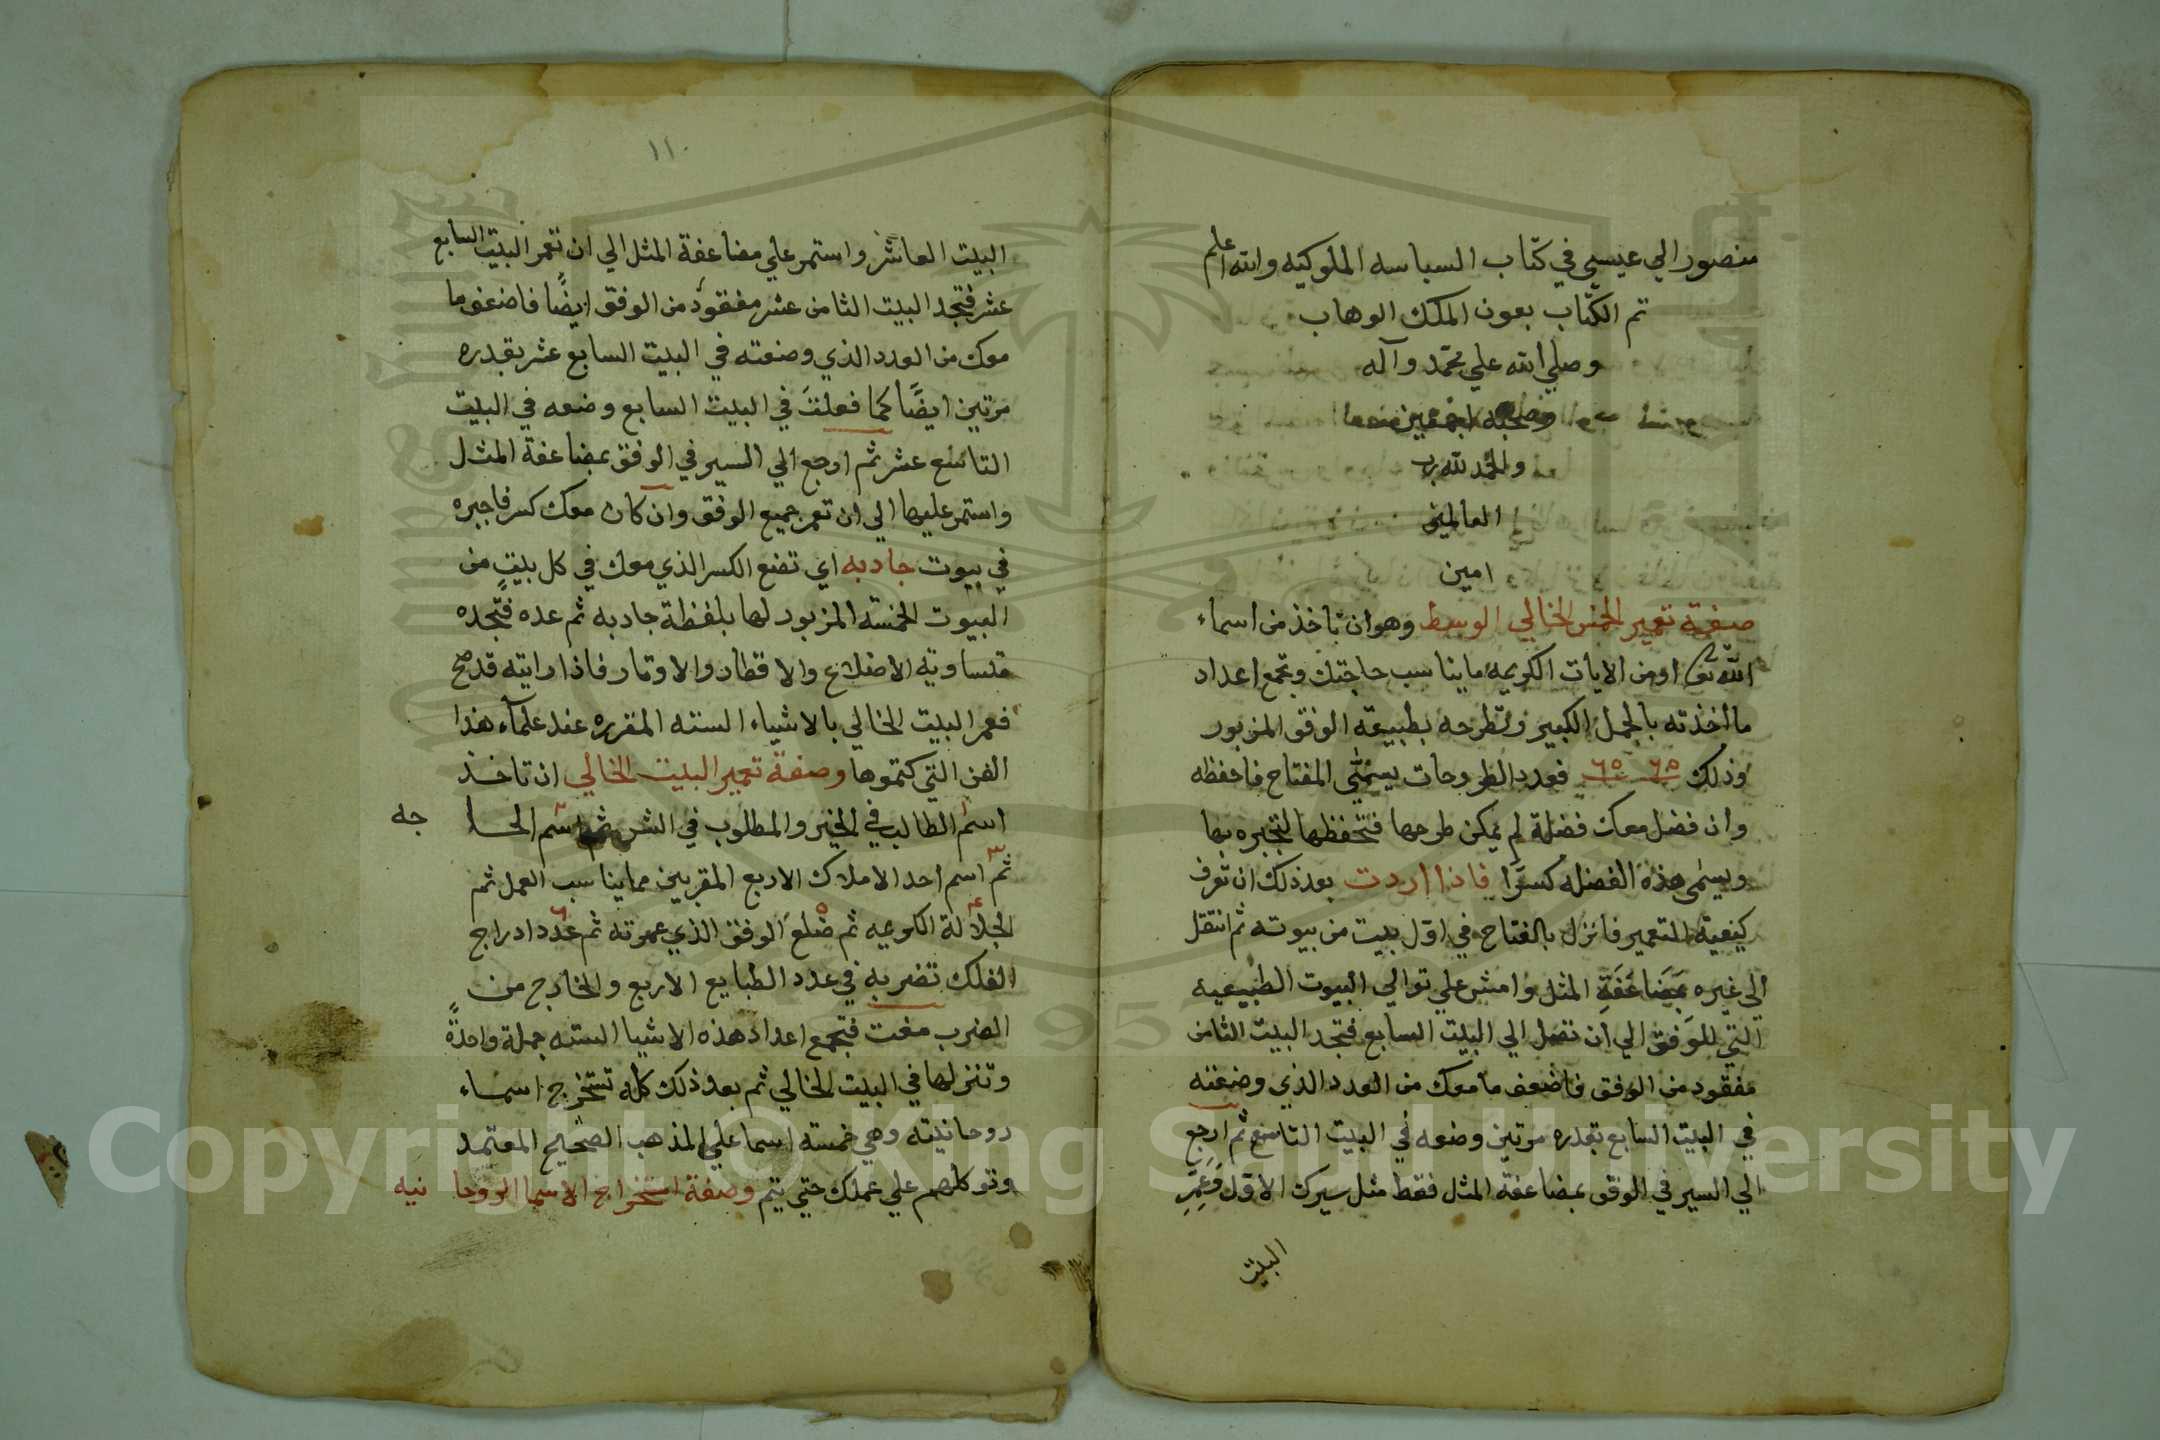 منصور الي عيسي في كتاب السياسه الملوكيه والله اعلم
تم الكتاب بعون الملك الوهاب
وصلي الله علي محمد وآله
وصحبه اجمعين
والحمد لله رب
العالمين
امين
صفة تعمير المخمس الخالي الوسط وهو ان تأخذ من اسماء
الله او من الايات الكريمه ما يناسب حاجتك وتجمع اعداد
ما اخذته بالجمل الكبير وتطرحه بطبيعة الوفق المزبور
وذلك ٦٥ ٦٥ فعدد الطروحات يسمي المفتاح فاحفظه
وان فضل معك فضلة لم يمكن طرحها فتحفظها لتجبره بها
ويسمى هذه الفضله كسرًا فاذا اردت بعد ذلك ان تعرف
كيفية التعمير فانزل بالمفتاح في اوّل بيت من بيوته ثم انتقل
الى غيره بمَضَاعَفَةِ المثل وامش علي توالي البيوت الطبيعيه
التي للوَفق الي أن تصل الي البيت السابع فتجد البيت الثامن
مفقود من الوفق فاضعف ما معك من العدد الذي وضعته
في البيت السابع بقدره مرتين وضعه في البيت التاسع ثم ارجع
الي السير في الوفق بمضاعفة المثل فقط مثل سيرك الاوّل فَعَمِّر
البيت
١١٠
البيت العاشر واستمر علي مضاعفة المثل الي ان تعمر البيت السابع
عشر فتجد البيت الثامن عشر مفقود من الوفق ايضًا فاضعف ما
معك من العدد الذي وضعته في البيت السابع عشر بقدره
مرتين ايضًا كما فعلتَ في البيت السابع وضعه في البيت
التاسع عشر ثم ارجع الي السير في الوفق بمضاعفة المثل
واستمر عليها الي ان تعمر جميع الوفق وان كان معك كسر فاجبره
في بيوت جادبه اي تضع الكسر الذي معك في كل بيتٍ من
البيوت الخمسة المزبور لها بلفظة جادبه ثم عده فتجده
متساوية الاضلاع والاقطار والاوتار فاذا رايته قد صح
فعمر البيت الخالي بالاشياء السته المقرره عند علمآء هذا
الفن التي كتموها وصفة تعمير البيت الخالي ان تاخذ
اسم الطالب في الخير والمطلوب في الشر ثم اسم الحا جه
ثم اسم احد الاملاك الاربع المقربين مما يناسب العمل ثم
الجلالة الكريمه ثم ضلع الوفق الذي عمرته ثم عدد ادراج
الفلك تضربه في عدد الطبايع الاربع والخارج من
الضرب مغت فتجمع اعداد هذه الاشيا السته جملة واحدةً
وتنزلها في البيت الخالي ثم بعد ذلك كله تستخرج اسماء
روحانيته وهي خمسته اسما علي المذهب الصحيح المعتمد
وتوكلهم علي عملك حتي يتم وصفة استخراج الاسما الروحا نيه
Copyright © King Saud University